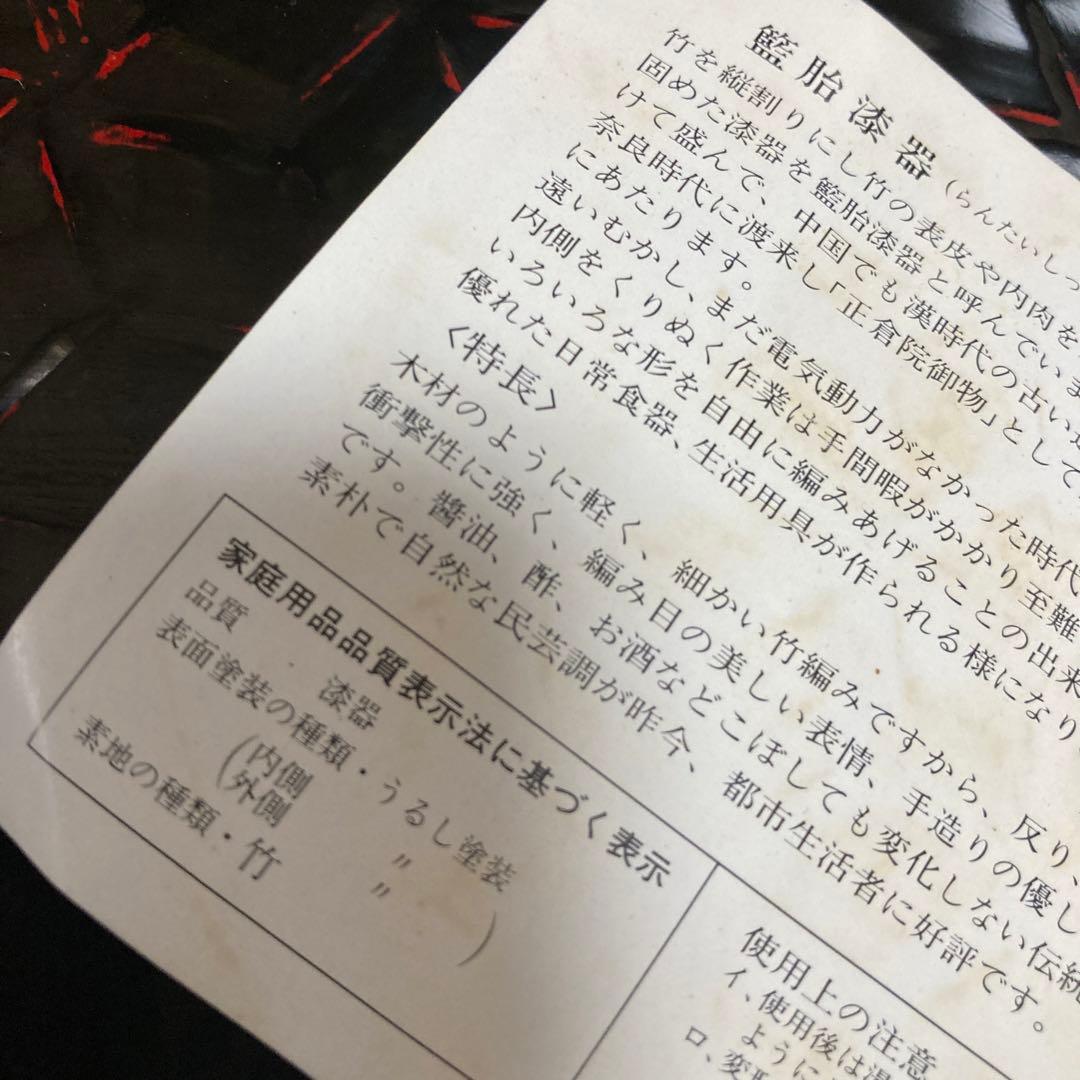 籃胎漆器（らんたいしつ
竹を縦割りにし竹の表皮や内肉を
固めた漆器を籃胎漆器と呼んでいま
けて盛んで、中国でも漢時代の古い
奈良時代に渡来し「正倉院御物」として
にあたります。
遠いむかし、まだ電気動力がなかった時代
内側をくりぬく作業は手間暇がかかり至難
いろいろな形を自由に編みあげることの出来
優れた日常食器、生活用具が作られる様になり
〈特長〉
木材のように軽く、細かい竹編みですから、反り、
衝撃性に強く、編み目の美しい表情、手造りの優し
です。醬油、酢、お酒などこぼしても変化しない伝統
素朴で自然な民芸調が昨今、都市生活者に好評です。
家庭用品品質表示法に基づく表示
品質　漆器
表面塗装の種類・うるし塗装
（内側　〃
外側　〃）
素地の種類・竹
使用上の注意
イ、使用後は
ように
ロ、変